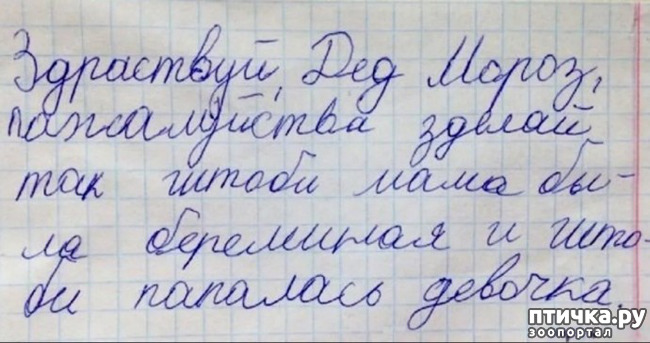 Здраствуй, Дед Мороз,
пажалуйства зделай
так штоби мама бы-
ла береминая и што-
би папалась девочка.
птичка.ру
зоопортал